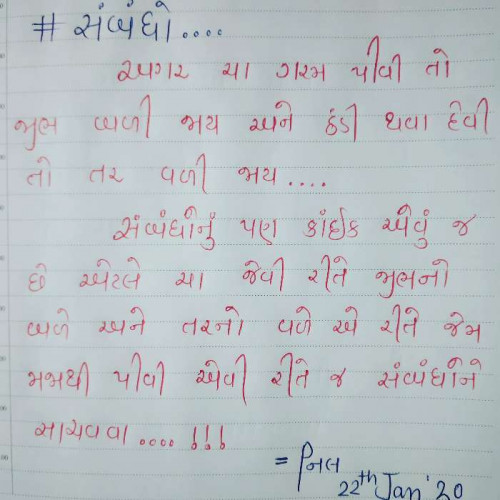 # સંબંધો....
અગર ચા ગરમ પીવી તો
જીભ બળી જાય અને ઠંડી થવા દેવી
તો તર વળી જાય....
સંબંધોનું પણ કાંઈક એવું જ
છે એટલે ચા જેવી રીતે જીભનો
બળે અને તરનો વળે એ રીતે જેમ
મજાથી પીવી એવી રીતે જ સંબંધોને
સાચવવા.... !!!
= નિલ
22th Jan' 20